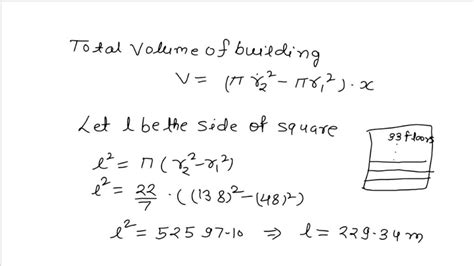 Total Volume of building
V = (π r₂² - π r₁²) · x
Let l be the side of square
93 floors
l² = π (r₂² - r₁²)
l² = 22/7 · ((138)² - (48)²)
l² = 52597.10 ⇒ l = 229.34 m